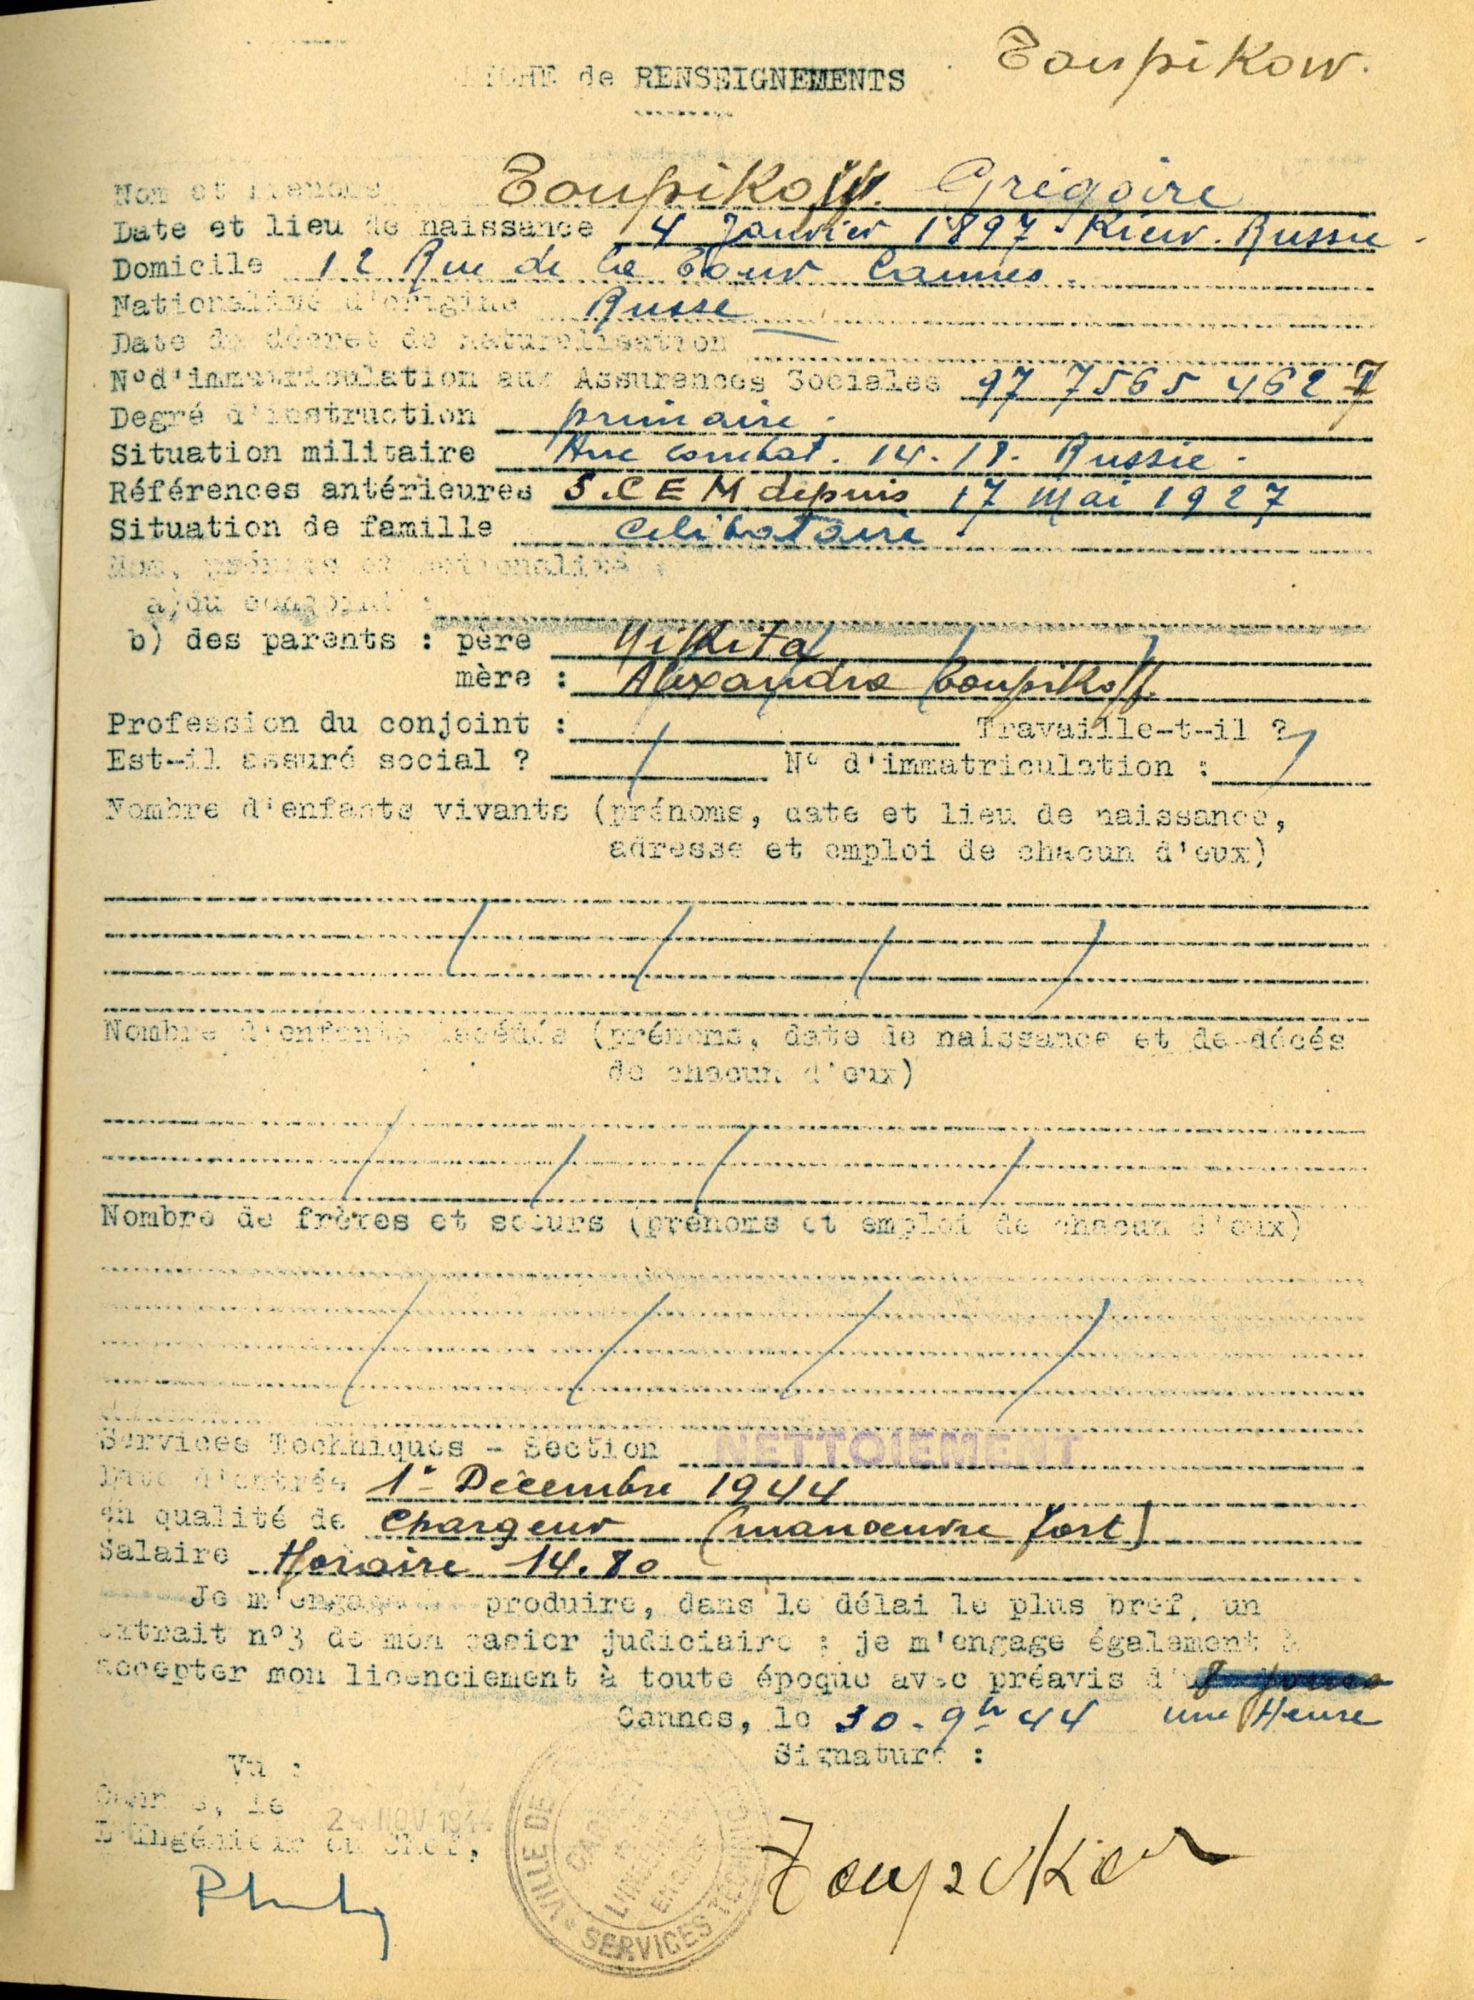 Toupikow.
FICHE de RENSEIGNEMENTS
Nom et Prénoms Toupikow. Grégoire
Date et lieu de naissance 4 Janvier 1897. Kiew. Russie.
Domicile 12 Rue de la Tour Cannes.
Nationalité d'origine Russe
Date du décret de naturalisation
N°d'immatriculation aux Assurances Sociales 97 7565 462 7
Degré d'instruction primaire.
Situation militaire combat. 14.18. Russie.
Références antérieures S.CEM depuis 17 Mai 1927
Situation de famille Celibataire.
Nom, prénoms et nationalité :
a)du conjoint :
b) des parents : père Nikita
mère : Alexandra Toupikoff.
Profession du conjoint : / Travaille-t-il ?
Est-il assuré social ? N° d'immatriculation : /
Nombre d'enfants vivants (prénoms, date et lieu de naissance,
adresse et emploi de chacun d'eux)
/ / / /
Nombre d'enfants décédés (prénoms, date de naissance et de décés
de chacun d'eux)
/ / / /
Nombre de frères et soeurs (prénoms et emploi de chacun d'eux)
/ / / /
Services Techniques - Section NETTOIEMENT
Date d'entrée 1° Décembre 1944
en qualité de Chargeur (manoeuvre fort)
Salaire Horaire 14.80
Je m'engage à produire, dans le délai le plus bref, un
extrait n°3 de mon casier judiciaire ; je m'engage également à
accepter mon licenciement à toute époque avec préavis d' 8 jours
Cannes, le 30.9bre 44 une Heure
Signature :
Vu :
Cannes, le 24 NOV 1944
L'Ingénieur en Chef,
VILLE DE CANNES
SERVICES TECHNIQUES
Toupikow